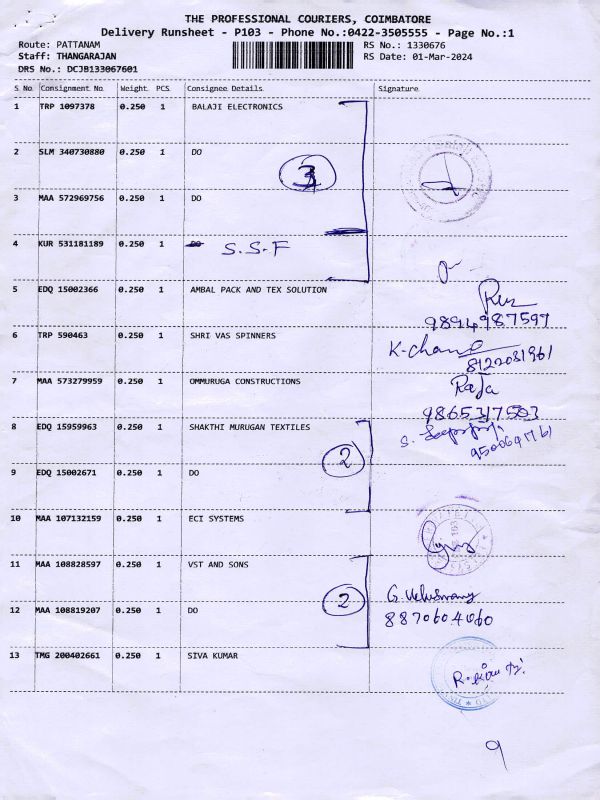 THE PROFESSIONAL COURIERS, COIMBATORE
Delivery Runsheet - P103 - Phone No.:0422-3505555 - Page No.:1
Route: PATTANAM RS No.: 1330676
Staff: THANGARAJAN RS Date: 01-Mar-2024
DRS No.: DCJB133067601
S No Consignment No Weight PCS Consignee Details Signature
1 TRP 1097378 0.250 1 BALAJI ELECTRONICS
2 SLM 340730880 0.250 1 DO
3
3 MAA 572969756 0.250 1 DO
4 KUR 531181189 0.250 1 DO S.S.F
5 EDQ 15002366 0.250 1 AMBAL PACK AND TEX SOLUTION
9894987597
6 TRP 590463 0.250 1 SHRI VAS SPINNERS K-chand
8122081961
7 MAA 573279959 0.250 1 OMMURUGA CONSTRUCTIONS Raja
9865317503
8 EDQ 15959963 0.250 1 SHAKTHI MURUGAN TEXTILES S.
2
9 EDQ 15002671 0.250 1 DO
10 MAA 107132159 0.250 1 ECI SYSTEMS
11 MAA 108828597 0.250 1 VST AND SONS G. Veluswamy
2
12 MAA 108819207 0.250 1 DO 8870604060
13 TMG 200402661 0.250 1 SIVA KUMAR
9